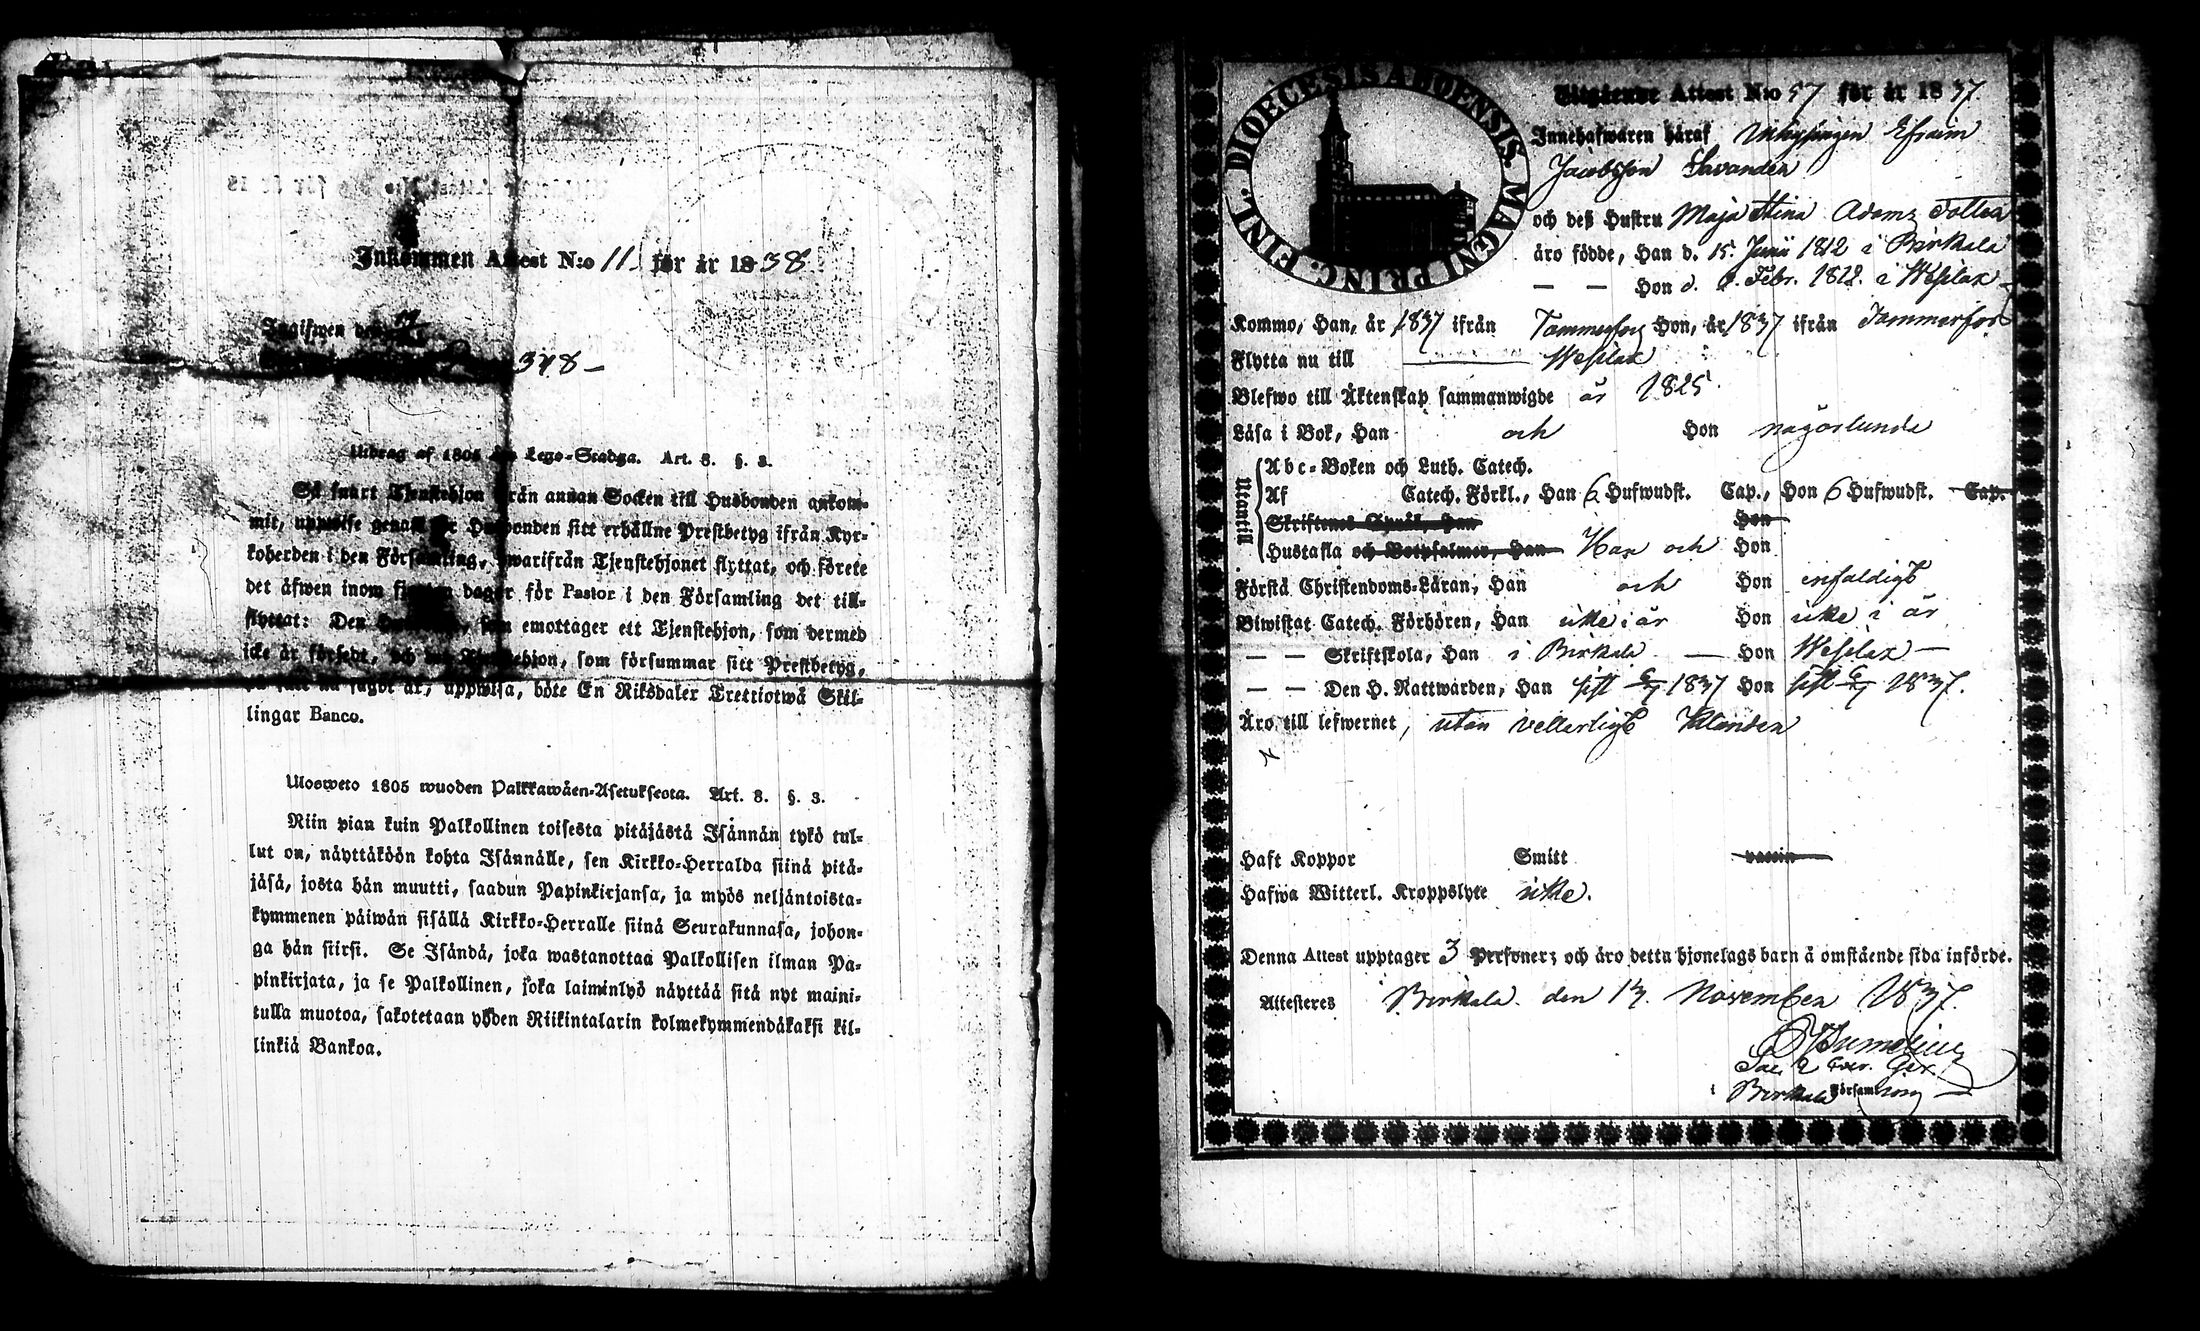 Inkommen Attest N:o 11. för år 1838
Ingifwen den
348
Utdrag af 1805 års Lego-Stadga. Art. 8. §. 3.
Så snart Tjenstehjon från annan Socken till Husbonden ankom-
mit, uppwise genast för Husbonden sitt erhållne Prestbetyg ifrån Kyr-
koherden i den Församling, hwarifrån Tjenstehjonet flyttat, och förete
det äfwen inom fjorton dagar för Pastor i den Församling det till-
flyttat: Den Husbonde, som emottager ett Tjenstehjon, som dermed
icke är försedt, och det Tjenstehjon, som försummar sitt Prestbetyg,
på sätt nu sagdt är, uppwisa, böte En Riksdaler Trettiotwå Skil-
lingar Banco.
Ulosweto 1805 wuoden Palkkawäen-Asetuksesta. Art. 8. §. 3.
Niin pian kuin Palkollinen toisesta pitäjästä Isännän tykö tul-
lut on, näyttäköön kohta Isännälle, sen Kirkko-Herralda siinä pitä-
jäsä, josta hän muutti, saadun Papinkirjansa, ja myös neljäntoista-
kymmenen päiwän sisällä Kirkko-Herralle siinä Seurakunnasa, johon-
ga hän siirsi. Se Isändä, joka wastanottaa Palkollisen ilman Pa-
pinkirjata, ja se Palkollinen, joka laiminlyö näyttää sitä nyt maini-
tulla muotoa, sakotetaan yhden Riikintalarin kolmekymmendäkaksi kil-
linkiä Bankoa.
FINL. DIOECESIS ABOENSIS. MAGNI PRINC.
Utgående Attest N:o 57 för år 1837.
Innehafwaren häraf Inhysingen Efraim
Jacobsson Savander
och deß Hustru Maja Stina Adams Dotter
äro födde, Han d. 15. Junii 1812 i Birkala
— — Hon d. Febr. 1812. i Wesilax
Kommo, Han, år 1837 ifrån Tammerfors Hon, år 1837 ifrån Tammerfors
Flytta nu till Wesilax
Blefwo till Äktenskap sammanwigde år 1825.
Läsa i Bok, Han och Hon någorlunda
Utantill
Abc-Boken och Luth. Catech.
Af Catech. Förkl., Han 6 Hufwudst. Cap., Hon 6 Hufwudst. Cap.
Skriftenes Språk, Han Hon
Hustafla och Botpsalmer, Han Han och Hon
Förstå Christendoms-Läran, Han och Hon enfaldigt
Biwistat Catech. Förhören, Han icke i år Hon icke i år
— — Skriftskola, Han i Birkala — Hon Wesilax —
— — Den H. Nattwarden, Han sist 6/7 1837 Hon sist 6/7 1837.
Äro till lefwernet, utan vetterligt klander
Haft Koppor Smitt vaccin
Hafwa Witterl. Kroppslyte icke.
Denna Attest upptager 3 Personer; och äro detta hjonelags barn å omstående sida införde.
Attesteres Birkala den 13. November 1837.
i Birkala Församling